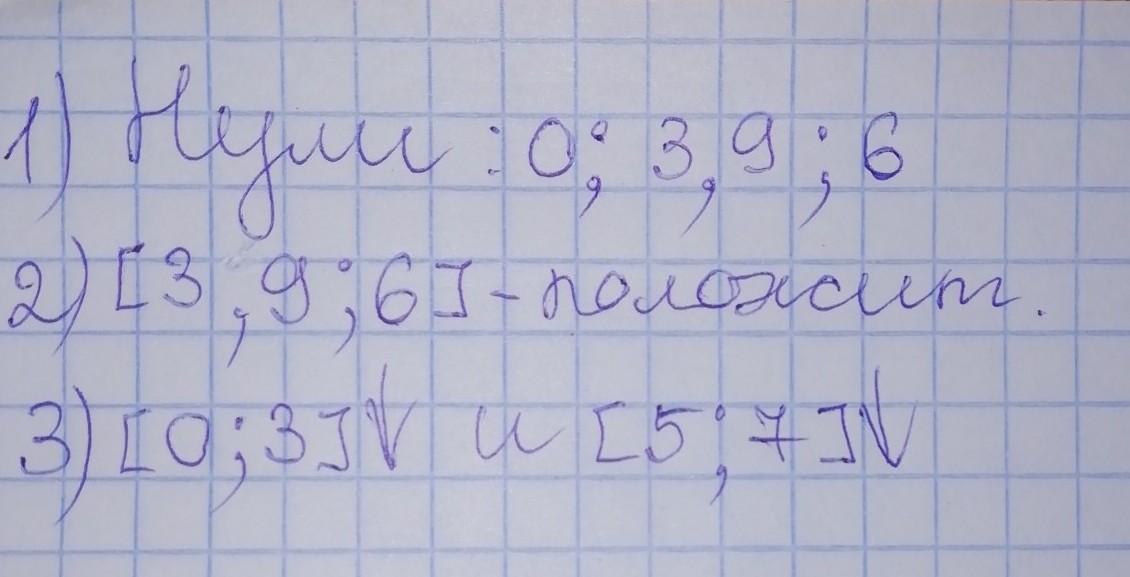 1) Нули : 0; 3,9 ; 6
2) [3,9;6] - положит.
3) [0;3]↓ и [5;7]↓